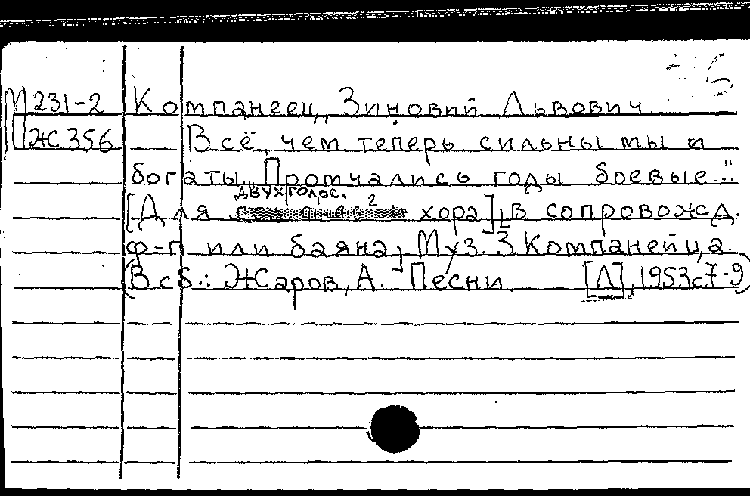 М 231-2 Компанеец, Зиновий Львович
ЖС 356 Всё, чем теперь сильны мы и
богаты. "Промчались годы боевые..."
двухголос.
[Для хора], в сопровожд.
ф-п или баяна; Муз. З. Компанейца
(В сб.: Жаров, А. Песни [Л], 1953 с 7-9)